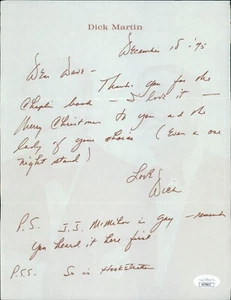 Dick Martin
December 18, '95
Dear Dave -
Thank you for the
Chaplin book - I love it -
Merry Christmas to you and the
lady of your choice (Even a one
night stand)
Love,
Dick
P.S. J.J. McMilan is gay - remember
you heard it here first
P.S.S. So is
JSA